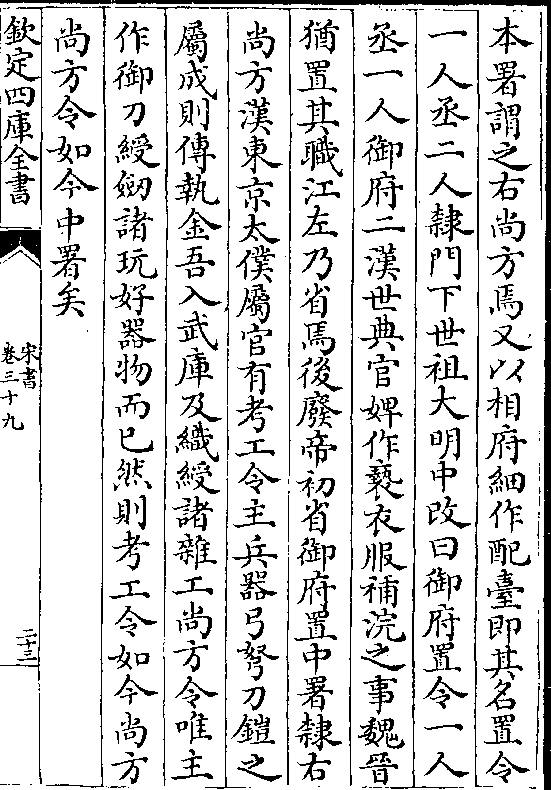 本署謂之右尚方焉又以相府細作配臺即其名置令
一人丞二人隸門下世祖大明中改曰御府置令一人
丞一人御府二漢世典官婢作褻衣服補浣之事魏晉
猶置其職江左乃省焉後廢帝初省御府置中署隸右
尚方漢東京太僕屬官有考工令主兵器弓弩刀鎧之
屬成則傳執金吾入武庫及織綬諸雜工尚方令唯主
作御刀綬劒諸玩好器物而已然則考工令如今尚方
尚方令如今中署矣
欽定四庫全書
宋書
卷三十九
二十三